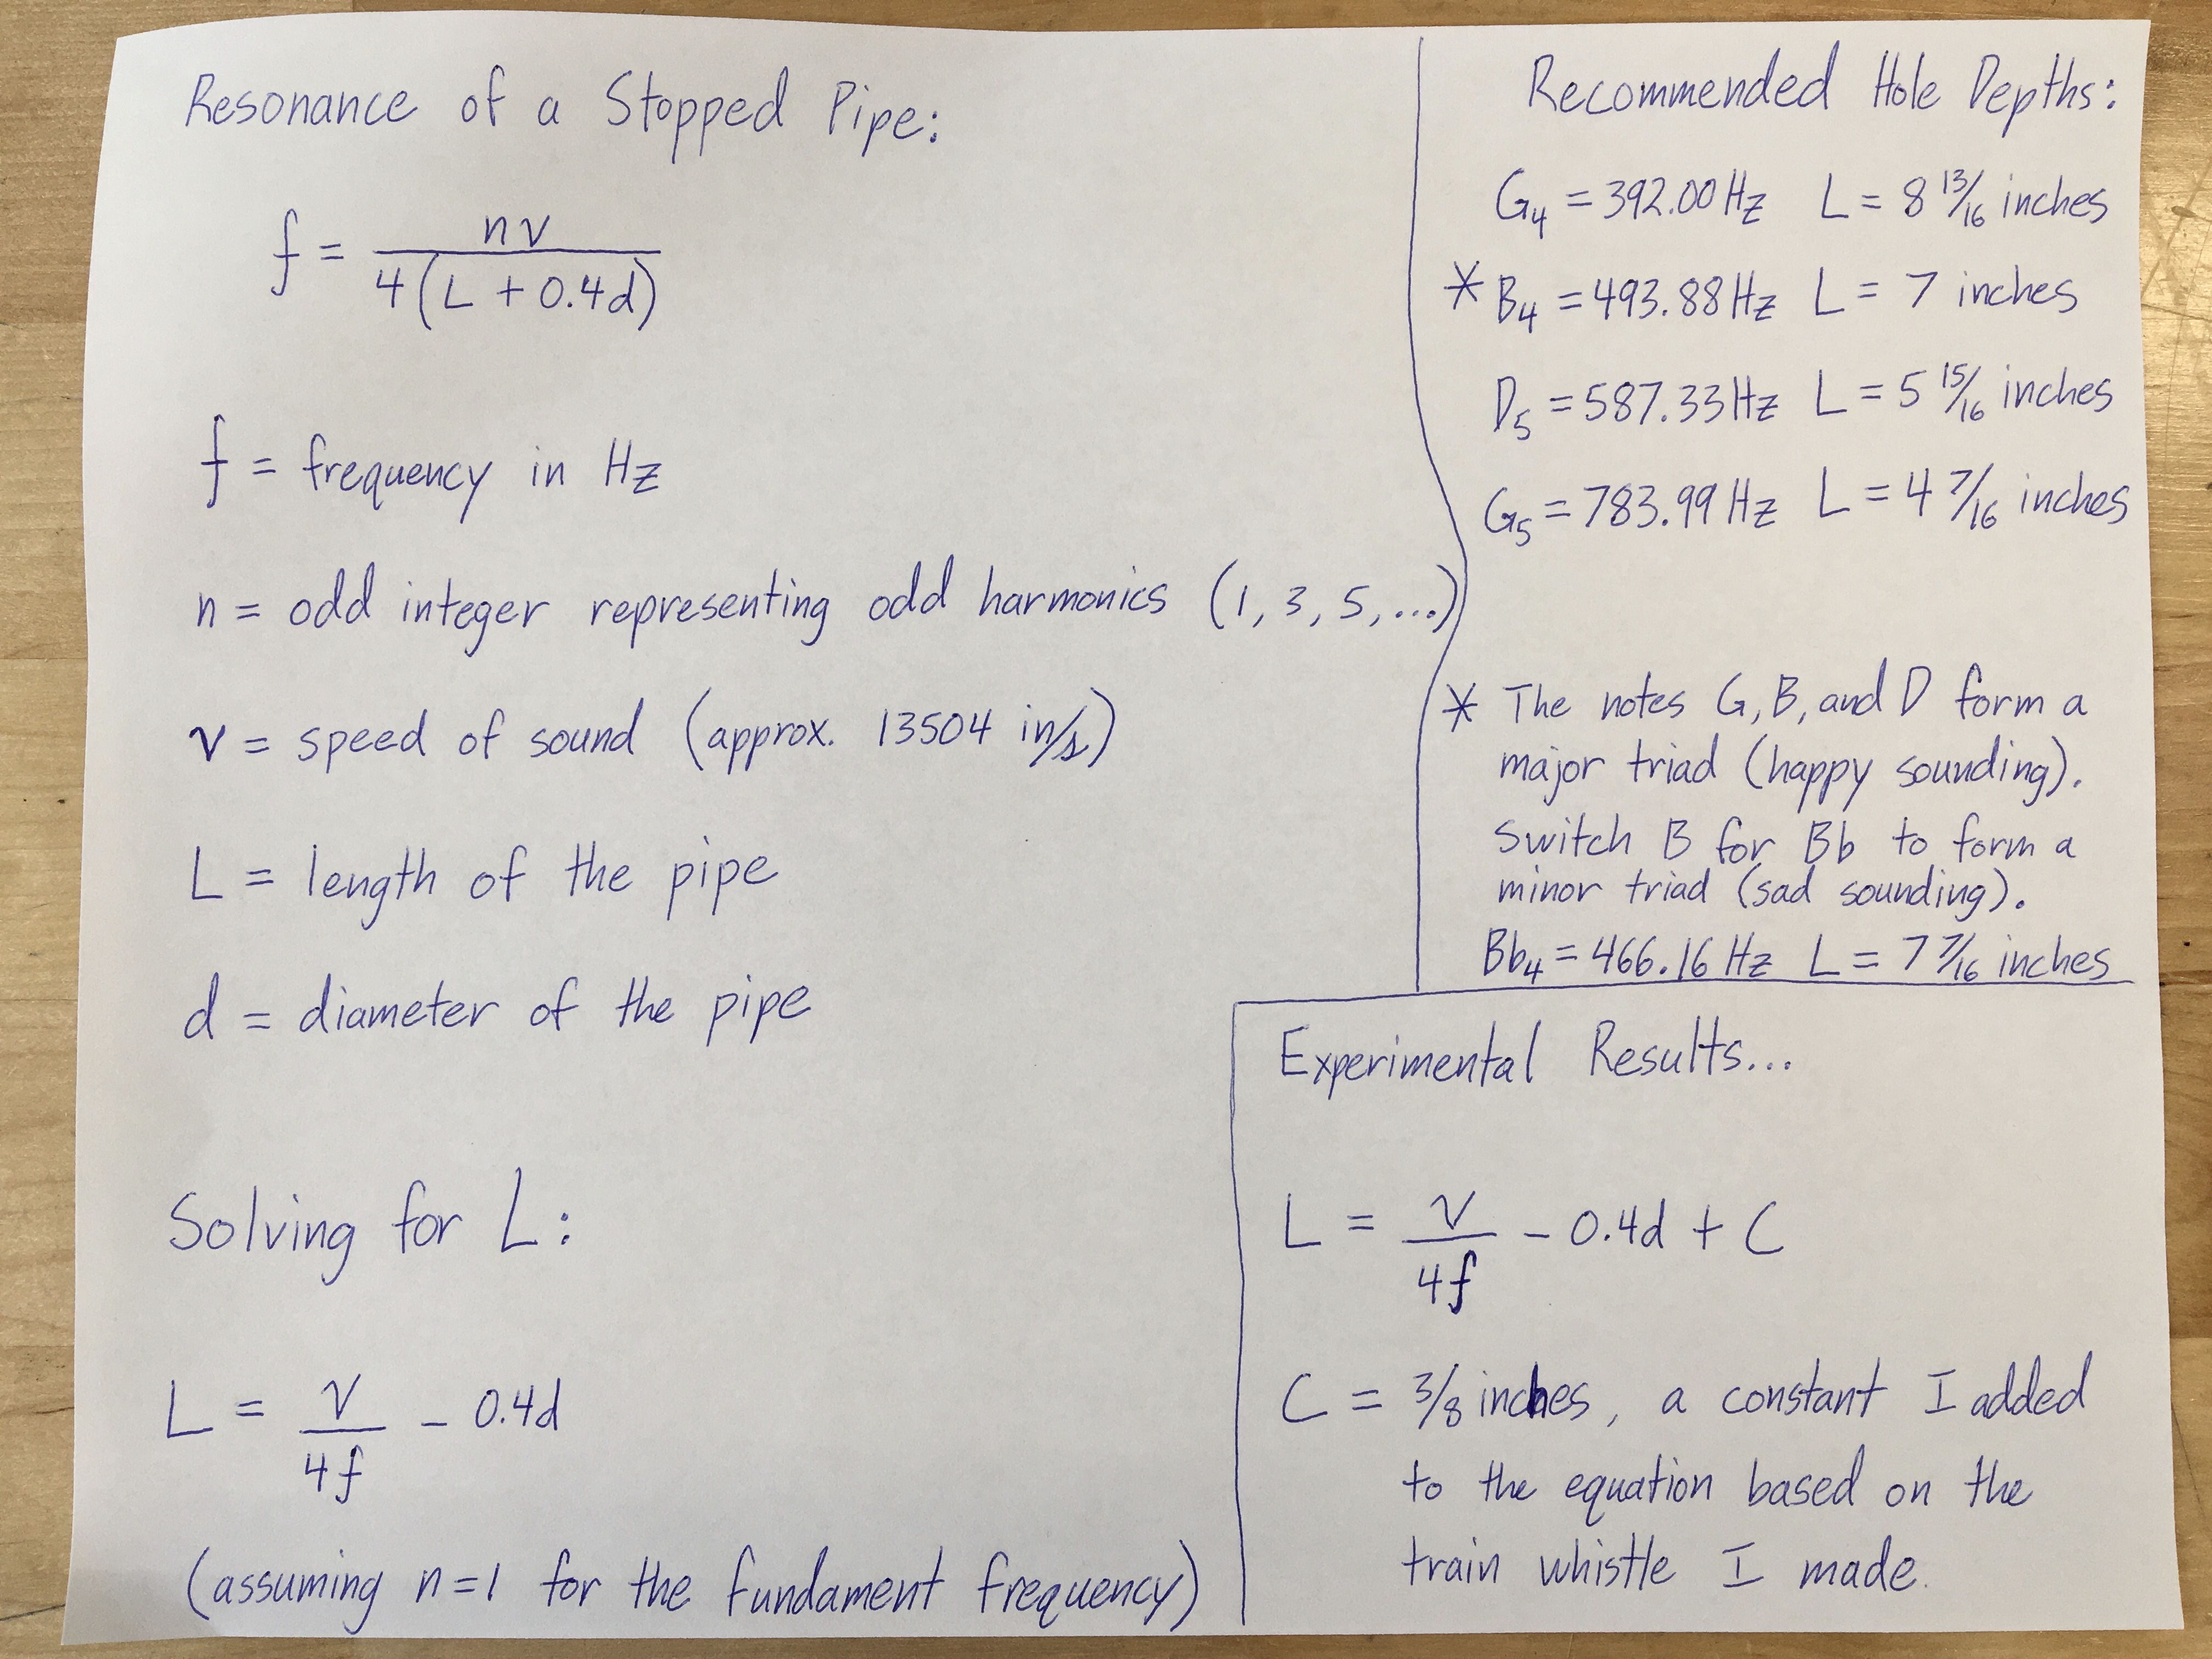 Resonance of a Stopped Pipe:
f = nv / 4(L + 0.4d)
f = frequency in Hz
n = odd integer representing odd harmonics (1, 3, 5, ...)
v = speed of sound (approx. 13504 in/s)
L = length of the pipe
d = diameter of the pipe
Solving for L:
L = v / 4f - 0.4d
(assuming n=1 for the fundament frequency)
Recommended Hole Depths:
G4 = 392.00 Hz L = 8 13/16 inches
* B4 = 493.88 Hz L = 7 inches
D5 = 587.33 Hz L = 5 15/16 inches
G5 = 783.99 Hz L = 4 7/16 inches
* The notes G, B, and D form a
major triad (happy sounding).
Switch B for Bb to form a
minor triad (sad sounding).
Bb4 = 466.16 Hz L = 7 7/16 inches
Experimental Results...
L = v / 4f - 0.4d + C
C = 3/8 inches, a constant I added
to the equation based on the
train whistle I made.